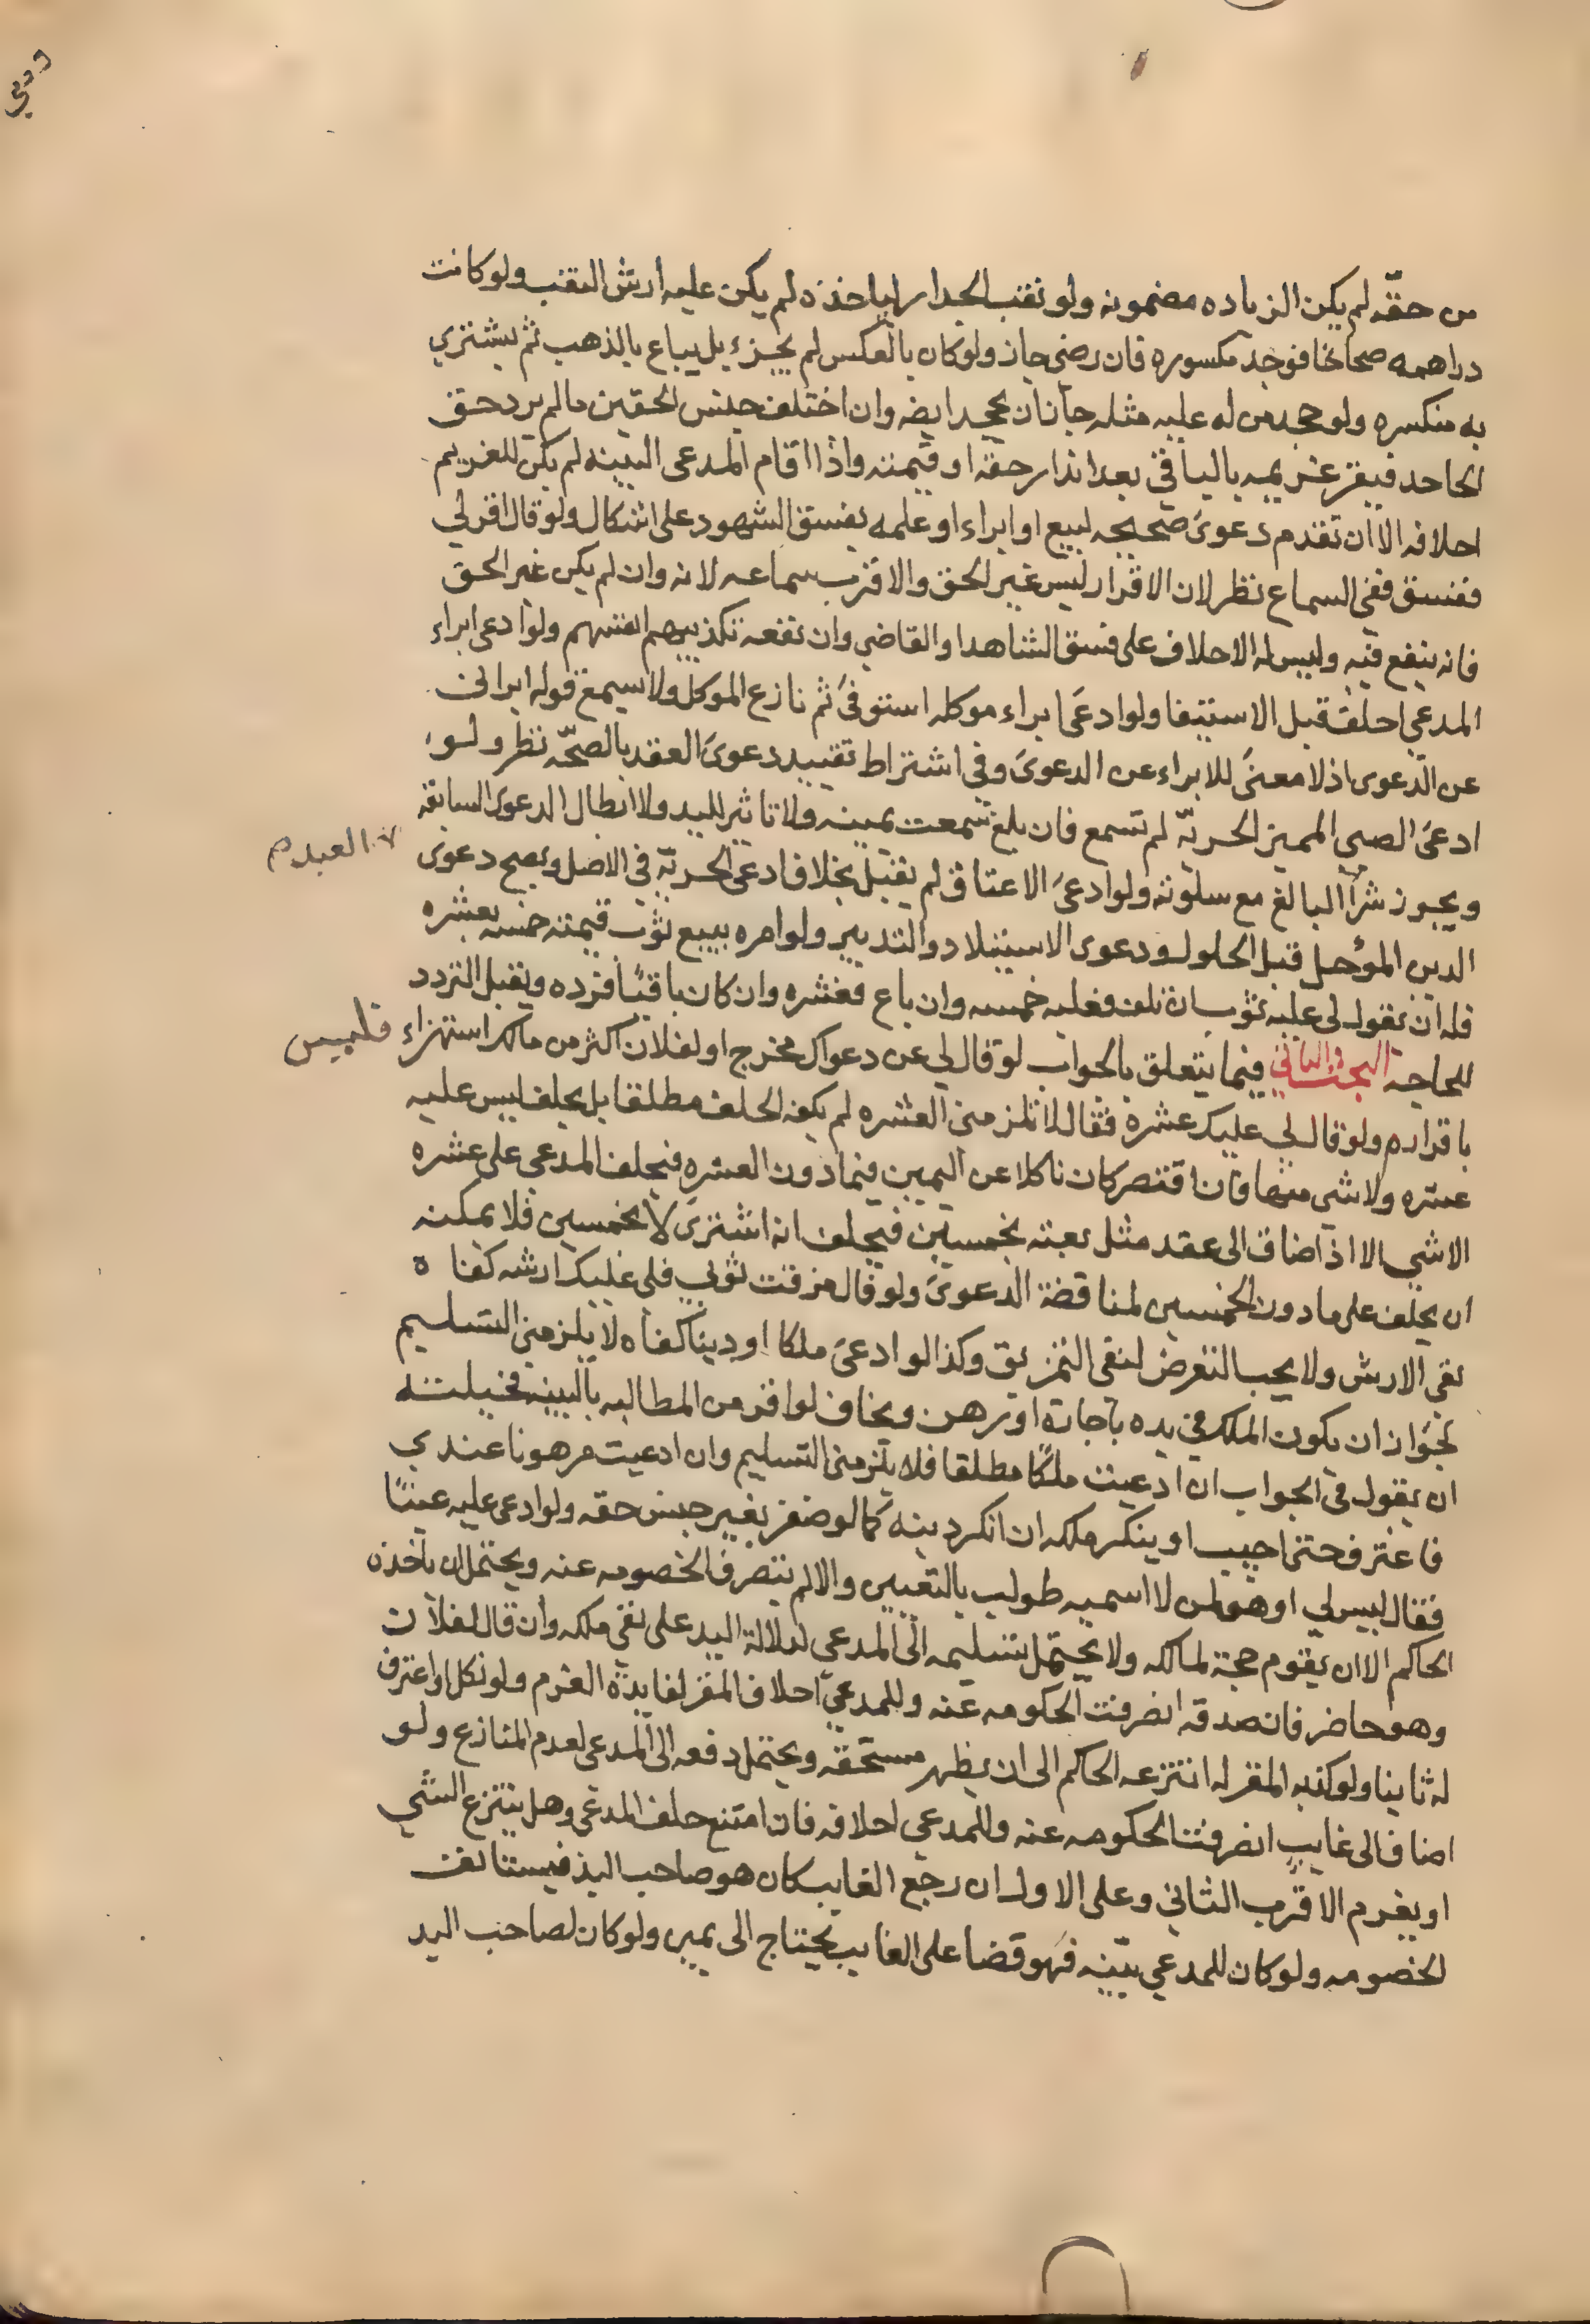 من حقّه لم يكن الزياده مضمونه ولو نقب الجدار لياخذه لم يكن عليه ارش النقب ولو كانت
دراهمه صحاحا فوجد مكسوره فان رضي جاز ولو كان بالعكس لم يجزء بل يباع بالذهب ثم يشتري
به منكسره ولو جحد من له عليه مثله جاز ان يجحد ايضه وان اختلف جنس الحقين مالم يرد حق
الجاحد فيقر غريمه بالباقي بعد انذار حقه او قيمته واذا اقام المدعى البينه لم يكن للغريم
احلافه الا ان تقدم دعوى صحيحه لبيع او ابراء او علمه بفسق الشهود على اشكال ولو قال اقر لي
ففسق ففي السماع نظر لان الاقرار ليس غير الحق والاقرب سماعه لانه وان لم يكن غير الحق
فانه ينفع فيه وليس له الاحلاف على فسق الشاهد او القاضي وان نفعه تكذيبهم انفسهم ولو ادعى ابراء
المدعي احلف قبل الاستيفا ولو ادعى ابراء موكله استوفى ثم نازع الموكل ولا يسمع قوله ابرالى
عن الدعوى اذ لا معنى للابراء عن الدعوى وفي اشتراط تقييد دعوى العقد بالصحّه نظر ولو
ادعى الصبى المميز الحريّه لم تسمع فان بلغ سمعت يمينه ولا تاثير لليد ولا ابطال الدعوى السابقه
العبد
ويجوز شرأ البالغ مع سكوته ولو ادعى الاعتاق لم يقبل بخلاف ادعى الحريّه في الاصل ويصح دعوى
الدين المؤجل قبل الحلول ودعوى الاستيلاد والتدبير ولو امره ببيع ثوب قيمته خمسه بعشره
فله ان يقول لي عليه ثوب ان تلف فعليه خمسه وان باع فعشره وان كان باقيًا فرده ويقبل التردد
للحاجه البحث الثاني فيما يتعلق بالجواب لو قال لي عن دعواك مخرج او لفلان اكثر من مالك استهزاء فليس
باقراره ولو قال لي عليك عشرة فقال لا تلزمني العشره لم يكف الحلف مطلقا بل يحلف ليس عليه
عشره ولا شي منها فان اقتصر كان ناكلا عن اليمين فيما دون العشره فيحلف المدعى على عشره
الا شي الا اذ اضاف الى عقد مثل بعته بخمسين فيحلف انه اشترى لا بخمسين فلا يمكنه
ان يحلف على ما دون الخمسين لمناقضة الدعوى ولو قال مزقت ثوبي فلي عليك ارشه كفاه
نفى الارش ولا يجب التعرض لنفى التمزيق وكذا لو ادعى ملكا او دينا كفاه لا يلزمني التسليم
لجواز ان يكون الملك في يده باجارة او رهن ويخاف لو اقر من المطالبه بالبينه فحيلته
ان يقول في الجواب ان ادعيت ملكًا مطلقا فلا يلزمنى التسليم وان ادعيت مرهونا عندي
فاعترف حتى اجيب او ينكر ملكه ان انكر دينه كما لو ضفر بغير جنس حقه ولو ادعى عليه عينًا
فقال ليس لي او هو لمن لا اسميه طولب بالتعيين والا لم ينصرف الخصومه عنه ويحتمل ان ياخذه
الحاكم الا ان يقوم حجة لمالكه ولا يحتمل تسليمه الى المدعى لدلالة اليد على نفي ملكه وان قال لفلان
وهو حاضر فان صدقه انصرفت الحكومه عنه وللمدعي احلاف المقر لفايدة الغرم ولو نكل او اعترف
له ثانيا ولو كذبه المقر له انتزعه الحاكم الى ان يظهر مستحقه ويحتمل دفعه الى المدعى لعدم المنازع ولو
اضاف الى غايب انصرفت الحكومه عنه وللمدعي احلافه فان امتنع حلف المدعى وهل ينتزع الشي
او يغرم الاقرب الثاني وعلى الاول ان رجع الغايب كان هو صاحب اليد فيستانف
الخصومه ولو كان للمدعي بيّنه فهو قضا على الغايب يحتاج الى يمين ولو كان لصاحب اليد